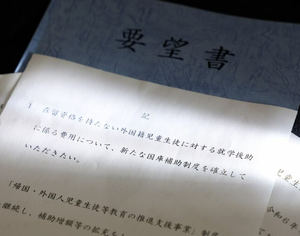 要望書
記
1 在留資格を持たない外国籍児童生徒に対する就学援助
に係る費用について、新たな国庫補助制度を確立して
いただきたい。
「帰国・外国人児童生徒等教育の推進支援事業」制度
継続し、補助増額等の拡充を
児童生
令和6年